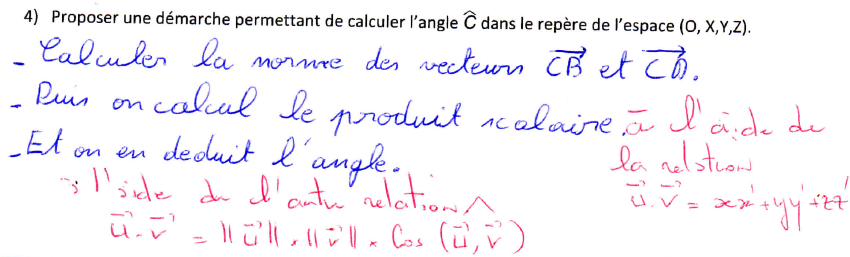 4) Proposer une démarche permettant de calculer l'angle Ĉ dans le repère de l'espace (O, X,Y,Z).
- Calculer la norme des vecteurs CB et CD.
- Puis on calcul le produit scalaire. à l'aide de
la relation
u.v = xx'+yy'+zz'
- Et on en deduit l'angle.
à l'aide de l'autre relation
u.v = ||u|| × ||v|| × Cos (u,v)